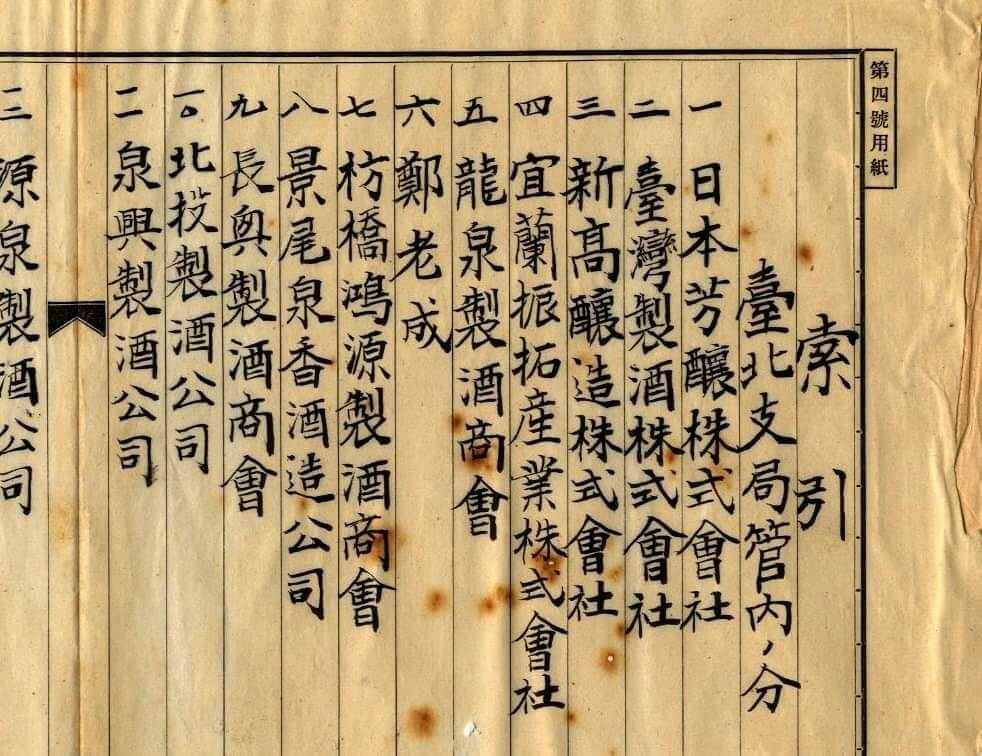 第四號用紙
索引
臺北支局管内ノ分
一 日本芳釀株式會社
二 臺灣製酒株式會社
三 新高釀造株式會社
四 宜蘭振拓産業株式會社
五 龍泉製酒商會
六 鄭老成
七 枋橋鴻源製酒商會
八 景尾泉香酒造公司
九 長興製酒商會
一〇 北投製酒公司
二 泉興製酒公司
三 源泉製酒公司